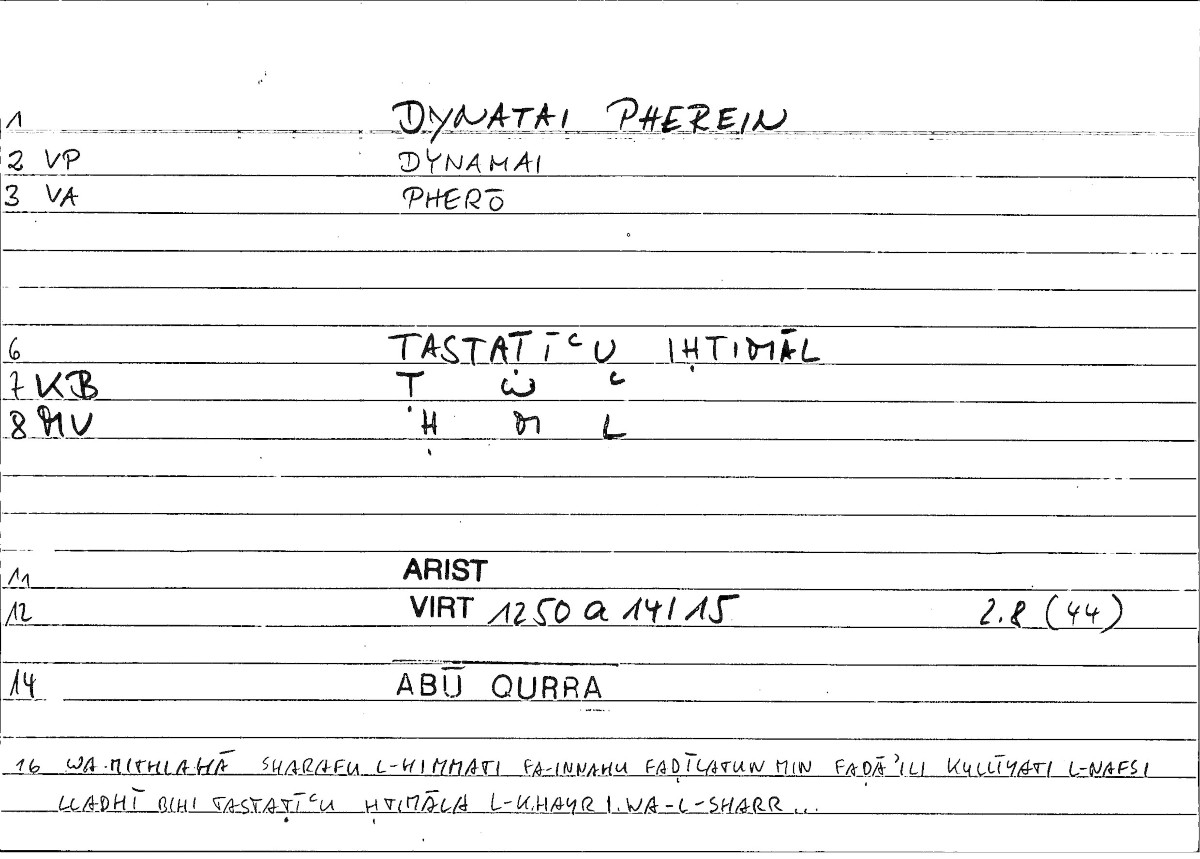 1 DYNATAI PHEREIN
2 VP DYNAMAI
3 VA PHERŌ
6 TASTAṬĪʿU IḤTIMĀL
7 KB Ṭ W ʿ
8 MV Ḥ M L
11 ARIST
12 VIRT 1250 a 14/15 2.8 (44)
14 ABŪ QURRA
16 WA-MITHLAHĀ SHARAFU L-HIMMATI FA-INNAHU FAḌĪLATUN MIN FAḌĀʾILI KULLĪYATI L-NAFSI
LLADHĪ BIHI TASTAṬĪʿU ḤTIMĀLA L-KHAYRI WA-L-SHARR...